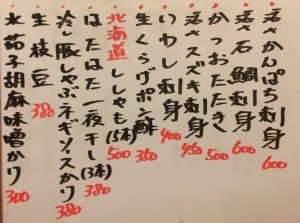 活きかんぱち刺身 600
活き石鯛刺身 600
かつおたたき 500
活きスズキ刺身 450
いわし刺身 400
生くらげポン酢 350
北海道ししゃも(5本) 500
はたはた一夜干し(3本) 380
冷し豚しゃぶネギソースかけ 380
生枝豆 380
水茄子胡麻味噌かけ 300